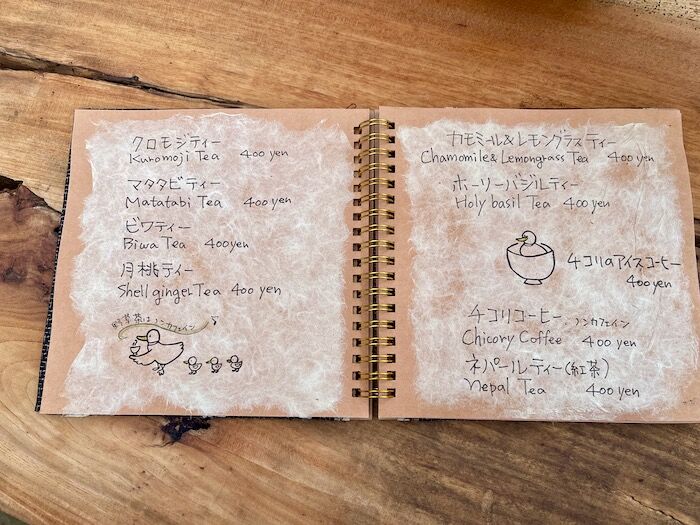 クロモジティー
Kuromoji Tea 400 yen
マタタビティー
Matatabi Tea 400 yen
ビワティー
Biwa Tea 400 yen
月桃ティー
Shell ginger Tea 400 yen
野草茶はノンカフェイン
カモミール&レモングラスティー
Chamomile & Lemongrass Tea 400 yen
ホーリーバジルティー
Holy basil Tea 400 yen
チコリのアイスコーヒー
400 yen
チコリコーヒー ノンカフェイン
Chicory Coffee 400 yen
ネパールティー(紅茶)
Nepal Tea 400 yen